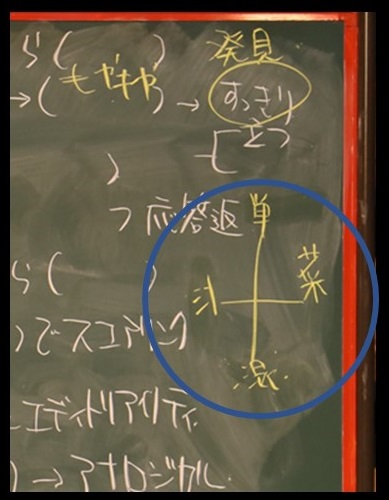 ら(　　) 発見
→(もやもや) → すっきり
)
つ 応答返 単
菜
ら(　　)
)でスコアリング
混
エディトリアリティ
) → アナロジカル